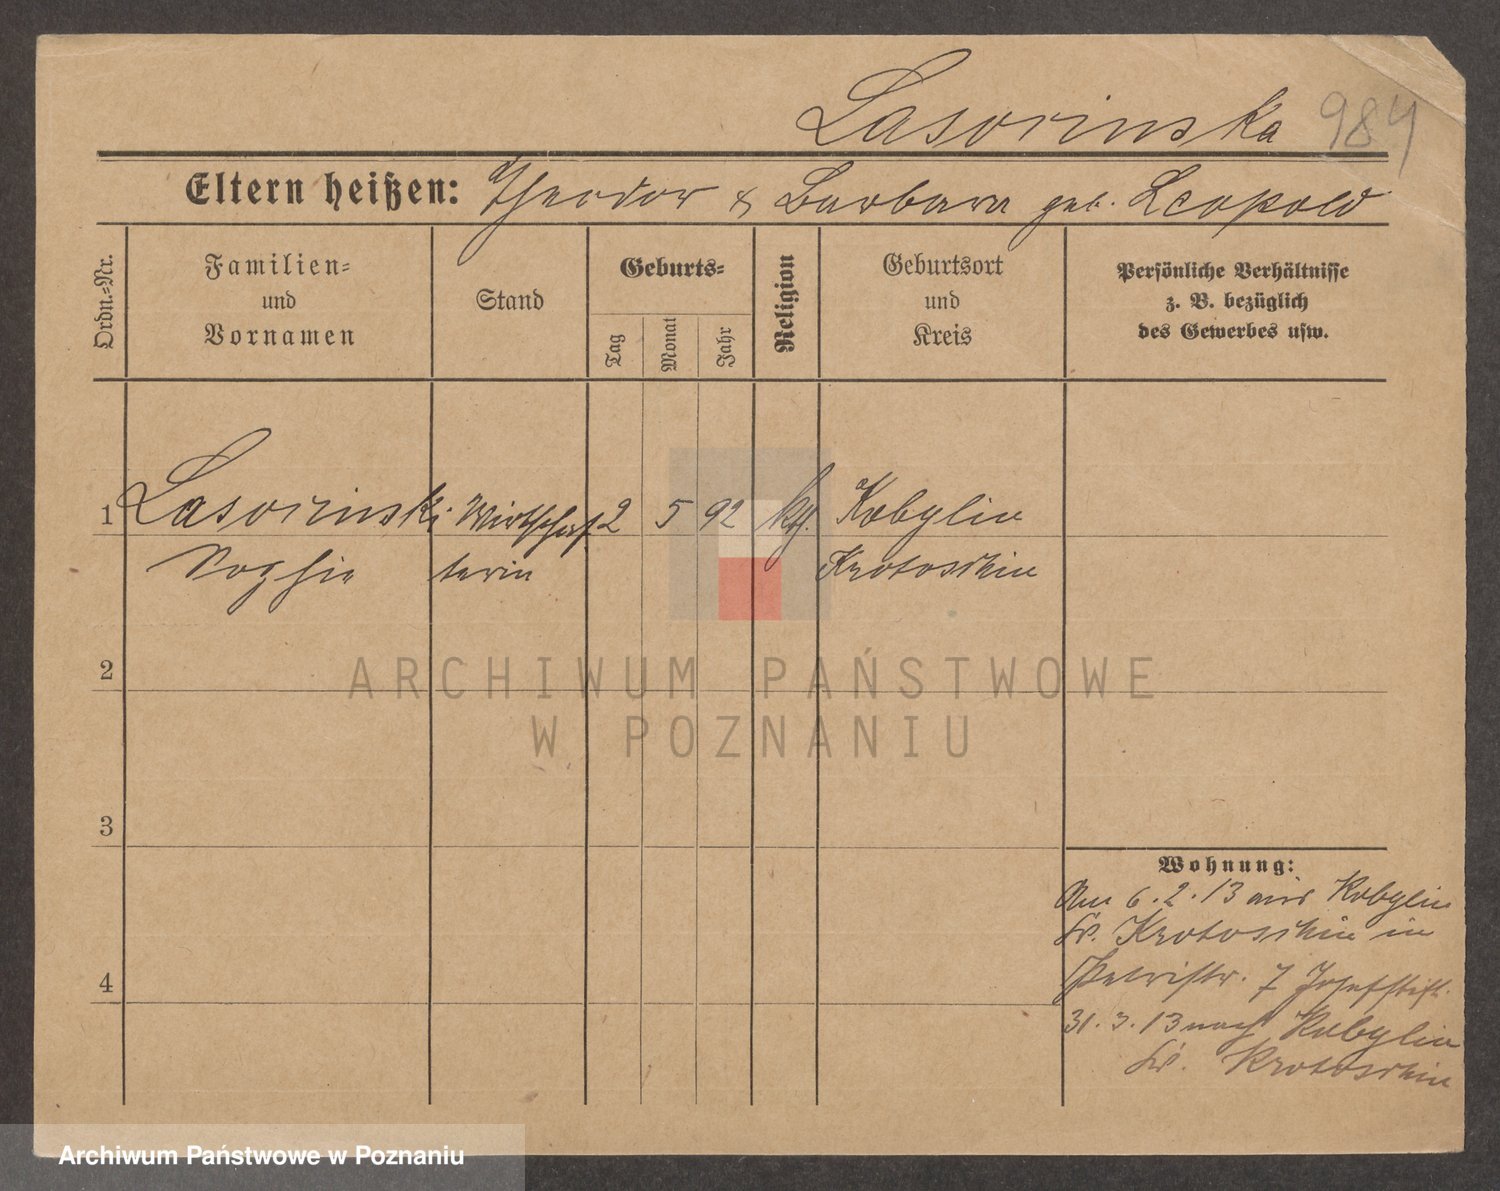 Lasorinska 984
Eltern heißen: Theodor & Barbara geb. Leopold
Ordn.=Nr.
Familien=
und
Vornamen
Stand
Geburts=
Tag
Monat
Jahr
Religion
Geburtsort
und
Kreis
Persönliche Verhältnisse
z. B. bezüglich
des Gewerbes usw.
1 Lasorinski Wirthschaf 2 5 92 kth. Kobylin
Sophie terin Krotoschin
2
3
4
Wohnung:
Am 6.2.13 aus Kobylin
Kr. Krotoschin in
Petristr. 7 Josefstift.
31.3.13 nach Kobylin
Kr. Krotoschin
ARCHIWUM PAŃSTWOWE
W POZNANIU
Archiwum Państwowe w Poznaniu